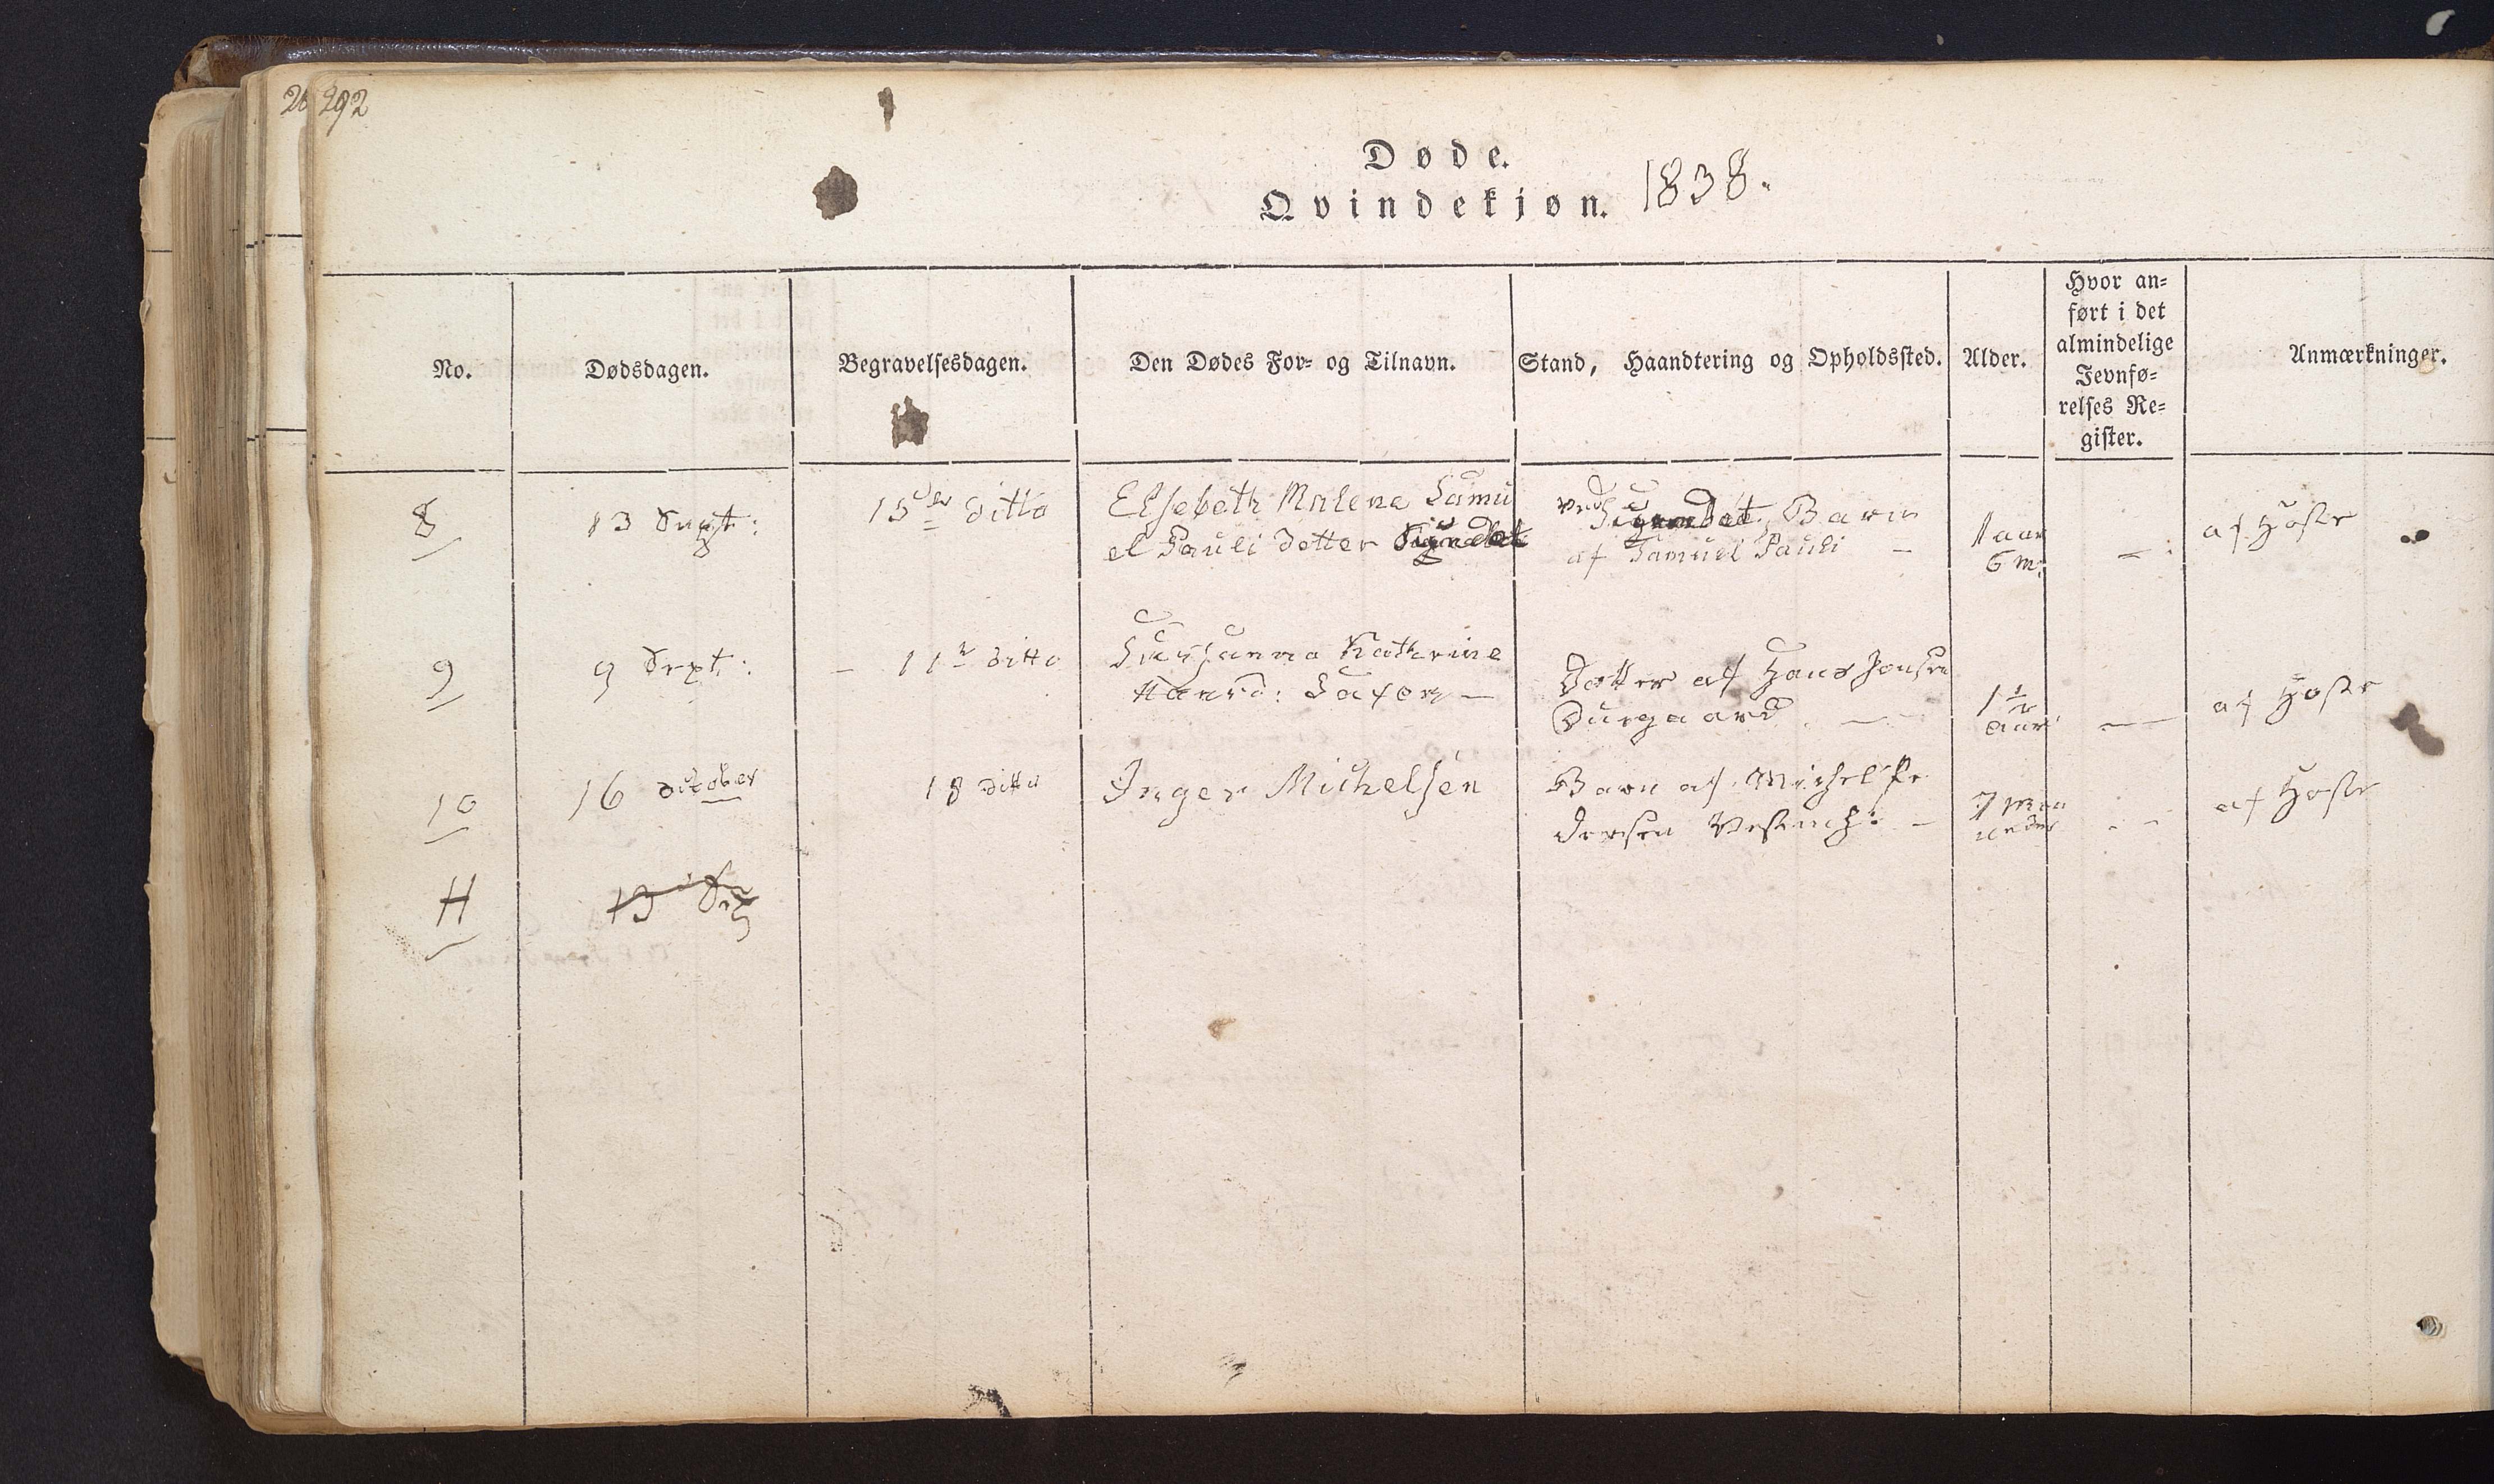 292
Døde.
Qvindekjøn. 1838.
No.
Dødsdagen.
Begravelsesdagen.
Den Dødes For- og Tilnavn.
Stand, Haandtering og Opholdssted.
Alder.
Hvor an-
ført i det
almindelige
Jevnfø-
relses Re-
gister.
Anmærkninger.
8
13 Sept:
15 ditto
Elsebeth Malena Samu
el Pauli datter
ved Barn
af Samuel Pauli —
1 aar
6 m:
af Hoste
9
9 Sept:
— 11 ditto
Susanna Kathrine
Hansd: Saxen —
Datter af Hans Jonsen
Durgaard. —
1½
aar
— —
af Hoste
10
16 October
18 ditto
Inger Michelsen
Barn af Michel Pe
dersen —
7 maa
neder
af Hoste
11
13 Sep